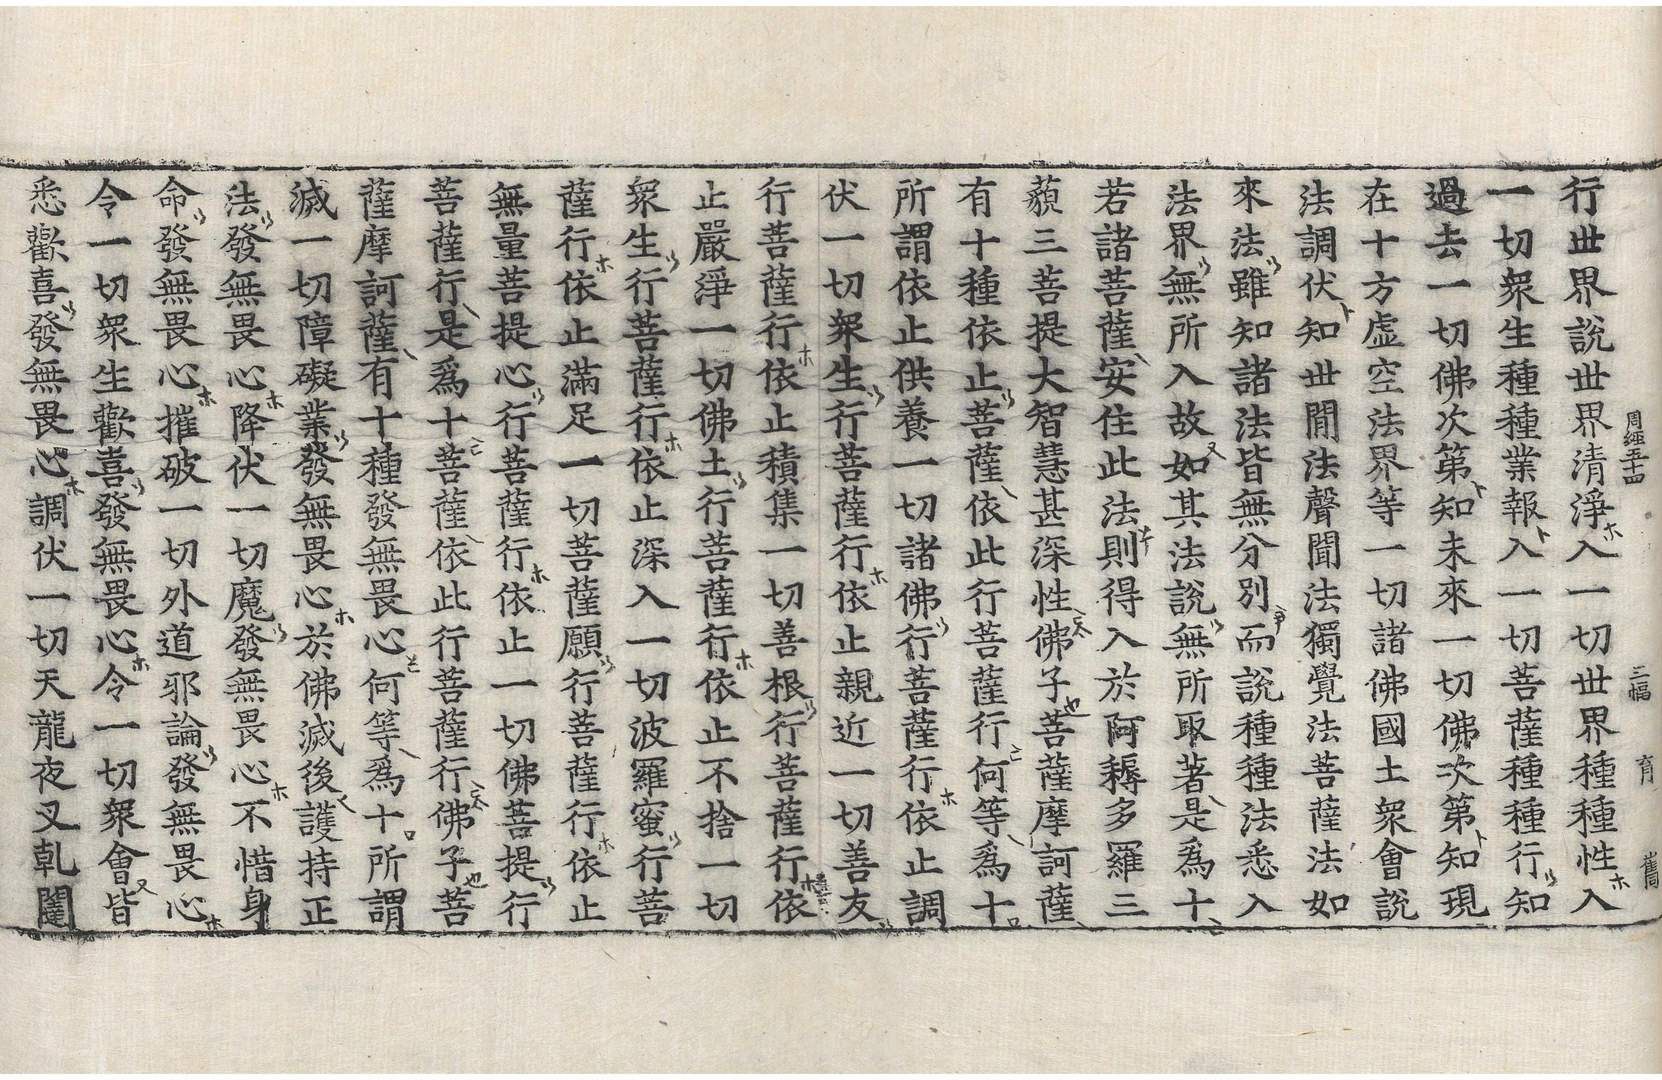 周經五十四 三幅 育
行世界說世界清淨入一切世界種種性入
一切衆生種種業報入一切菩薩種種行知
過去一切佛次第知未來一切佛次第知現
在十方虛空法界等一切諸佛國土衆會說
法調伏知世閒法聲聞法獨覺法菩薩法如
來法雖知諸法皆無分別而說種種法悉入
法界無所入故如其法說無所取著是爲十
若諸菩薩安住此法則得入於阿耨多羅三
藐三菩提大智慧甚深性佛子菩薩摩訶薩
有十種依止菩薩依此行菩薩行何等爲十
所謂依止供養一切諸佛行菩薩行依止調
伏一切衆生行菩薩行依止親近一切善友
行菩薩行依止積集一切善根行菩薩行依
止嚴淨一切佛土行菩薩行依止不捨一切
衆生行菩薩行依止深入一切波羅蜜行菩
薩行依止滿足一切菩薩願行菩薩行依止
無量菩提心行菩薩行依止一切佛菩提行
菩薩行是爲十菩薩依此行菩薩行佛子菩
薩摩訶薩有十種發無畏心何等爲十所謂
滅一切障礙業發無畏心於佛滅後護持正
法發無畏心降伏一切魔發無畏心不惜身
命發無畏心摧破一切外道邪論發無畏心
令一切衆生歡喜發無畏心令一切衆會皆
悉歡喜發無畏心調伏一切天龍夜叉乹闥